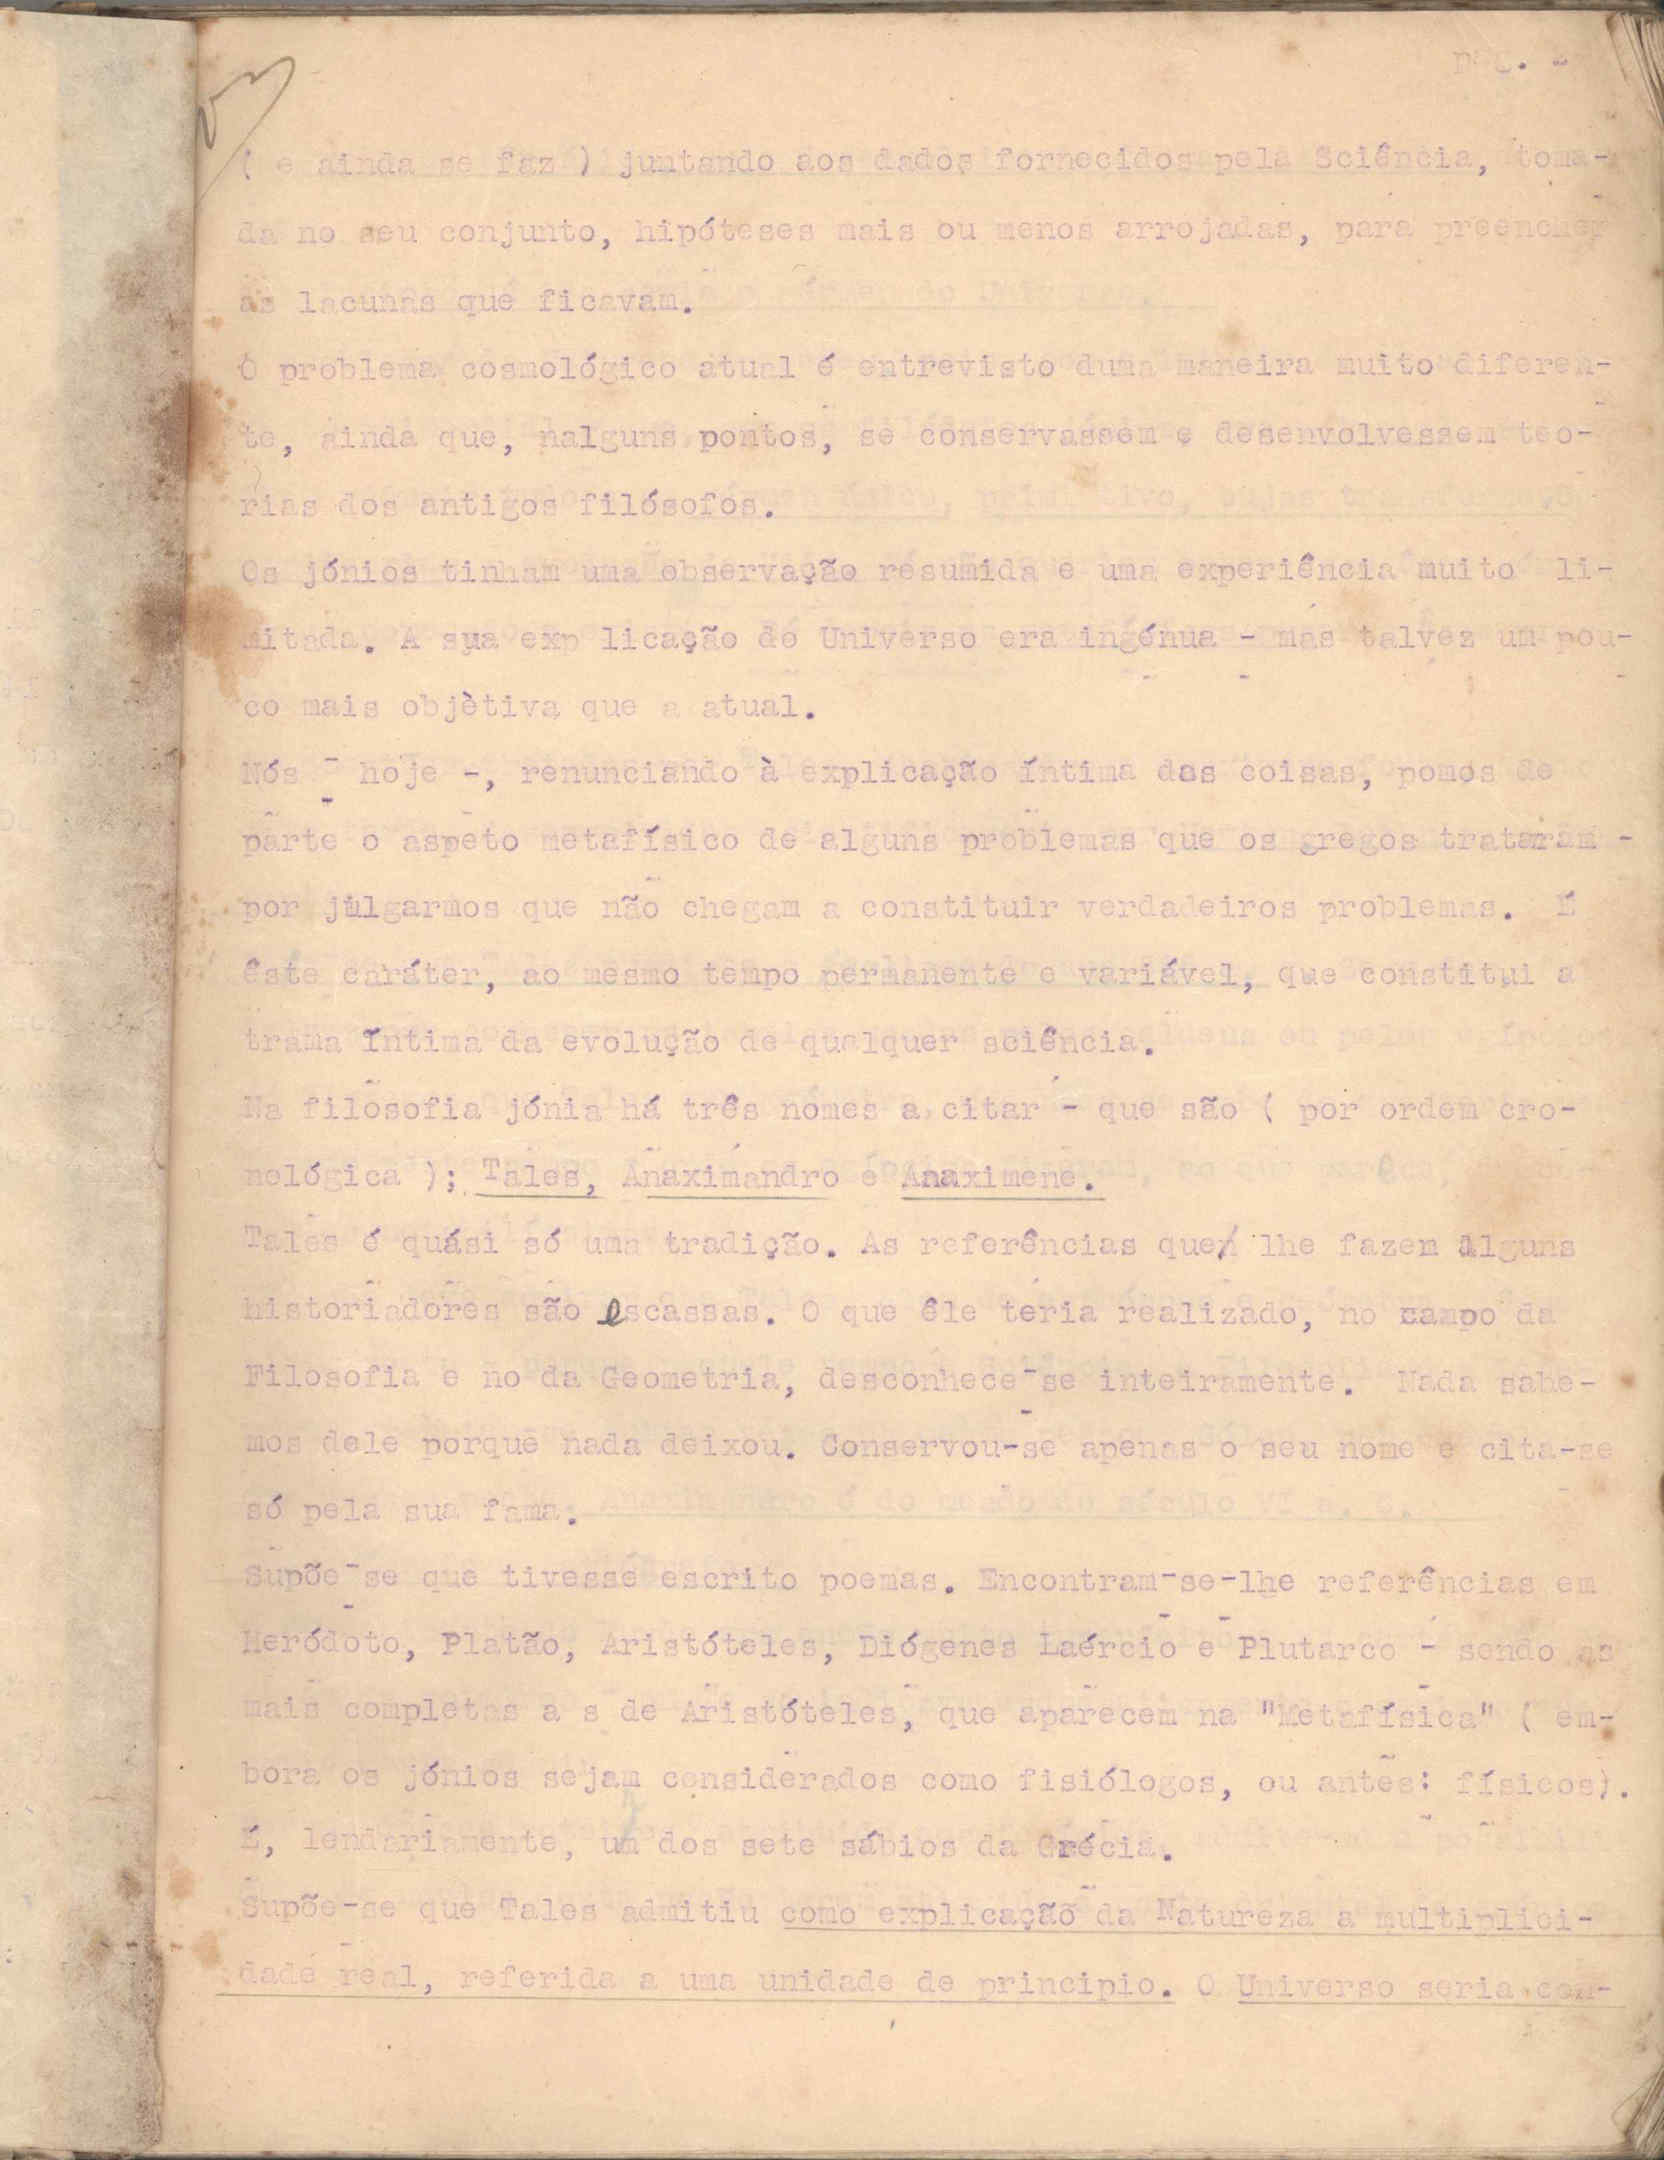 Pág. 2
( e ainda se faz ) juntando aos dados fornecidos pela Sciência, toma-
da no seu conjunto, hipóteses mais ou menos arrojadas, para preencher
as lacunas que ficavam.
O problema cosmológico atual é entrevisto duma maneira muito diferen-
te, ainda que, nalguns pontos, se conservassem e desenvolvessem teo-
rias dos antigos filósofos.
Os jónios tinham uma observação resumida e uma experiência muito li-
mitada. A sua exp licação do Universo era ingénua - mas talvez um pou-
co mais objètiva que a atual.
Nós - hoje -, renunciando à explicação íntima das coisas, pomos de
parte o aspeto metafísico de alguns problemas que os gregos trataram -
por julgarmos que não chegam a constituir verdadeiros problemas. É
êste caráter, ao mesmo tempo permanente e variável, que constitui a
trama íntima da evolução de qualquer sciência.
Na filosofia jónia há três nomes a citar - que são ( por ordem cro-
nológica ); Tales, Anaximandro e Anaximene.
Tales é quási só uma tradição. As referências que lhe fazem alguns
historiadores são escassas. O que êle teria realizado, no campo da
Filosofia e no da Geometria, desconhece-se inteiramente. Nada sabe-
mos dele porque nada deixou. Conservou-se apenas o seu nome e cita-se
só pela sua fama.
Supõe-se que tivesse escrito poemas. Encontram-se-lhe referências em
Heródoto, Platão, Aristóteles, Diógenes Laércio e Plutarco - sendo as
mais completas a s de Aristóteles, que aparecem na "Metafísica" ( em-
bora os jónios sejam considerados como fisiólogos, ou antes: físicos).
É, lendariamente, um dos sete sábios da Grécia.
Supõe-se que Tales admitiu como explicação da Natureza a multiplici-
dade real, referida a uma unidade de principio. O Universo seria con-